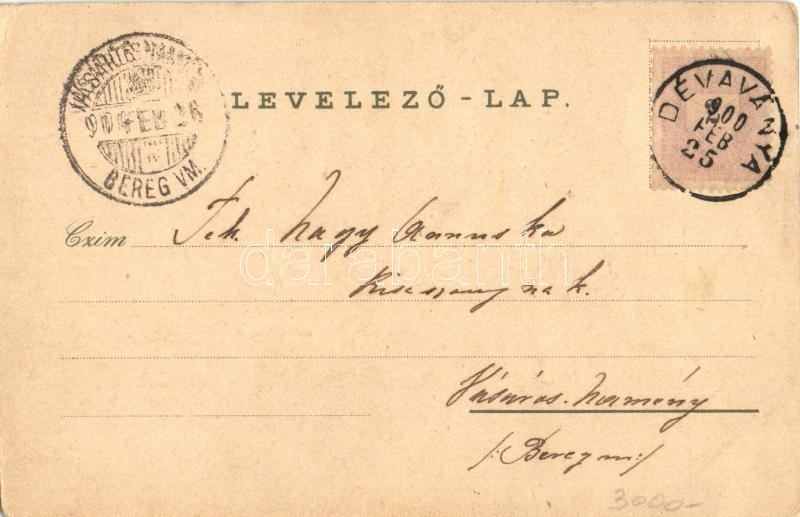 LEVELEZŐ - LAP.
DÉVAVÁNYA
900
FEB
25
900 FEB 26
BEREG VM.
Czim Tek. Nagy Annuska
Kisasszonynak.
Vásáros-Namény
/:Bereg m:/
3000-
darabanth